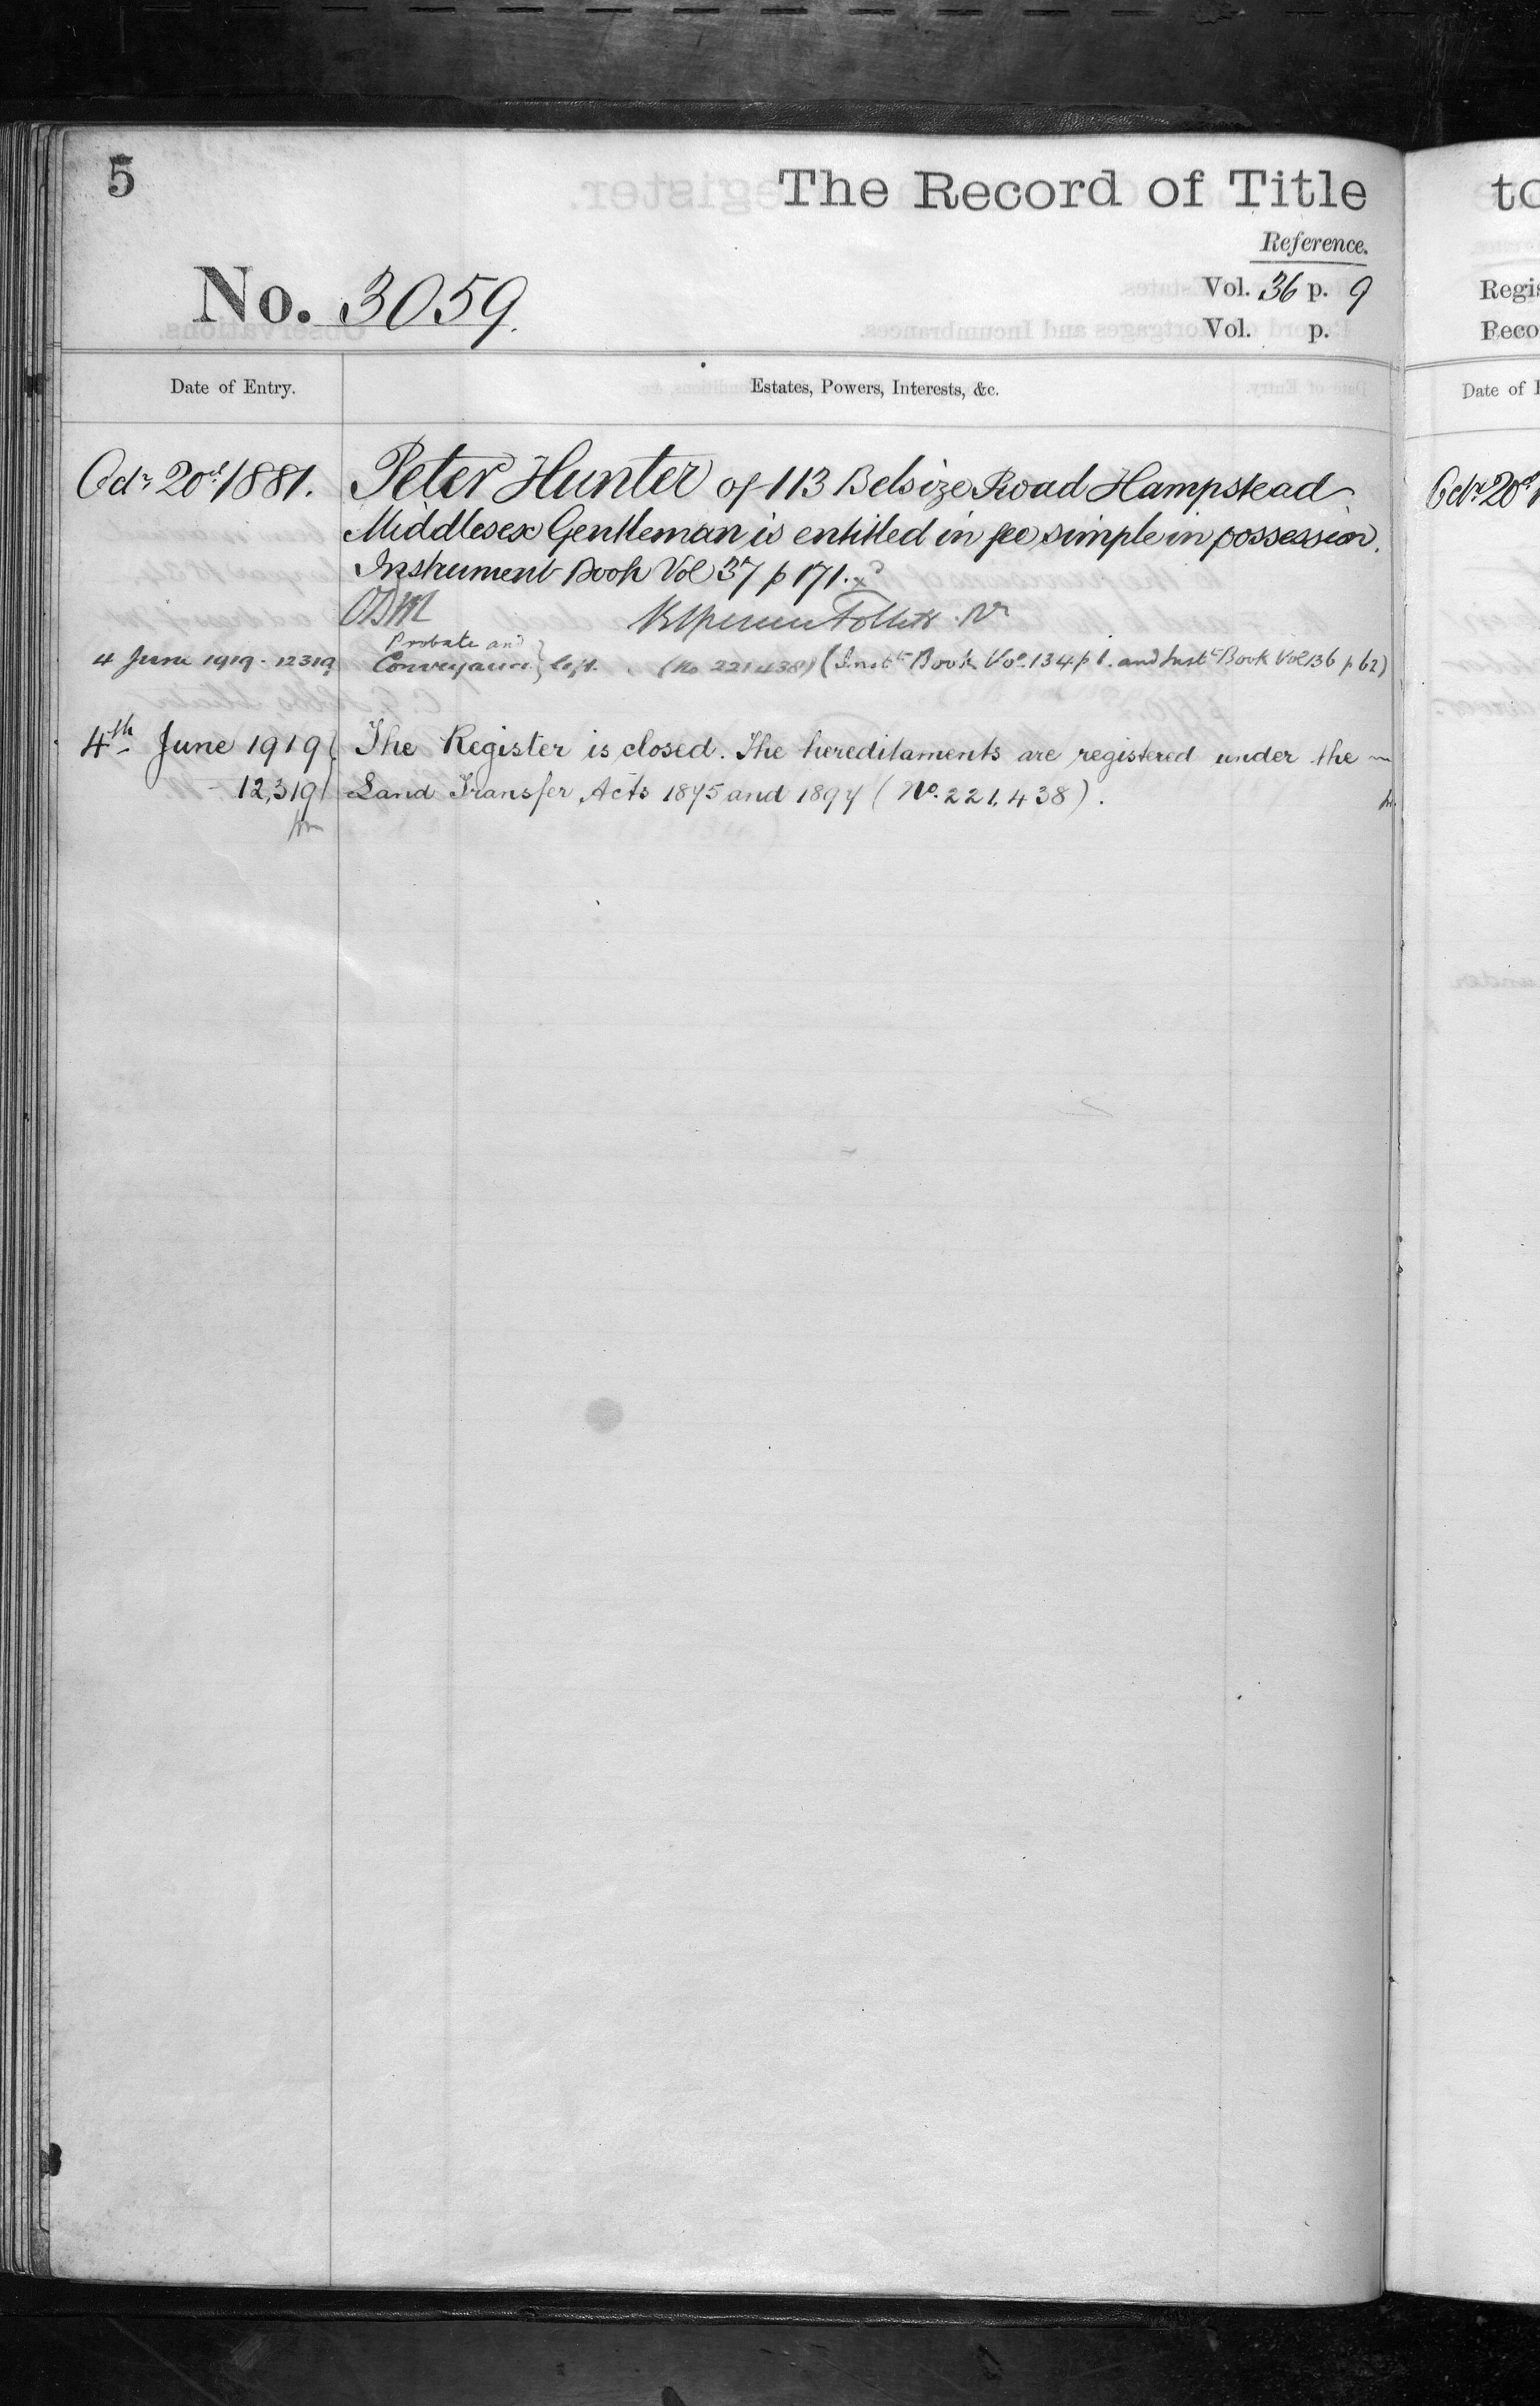 5
The Record of Title
Reference.
No. 3059.
Vol. 36 p. 9
Vol. p.
Date of Entry.
Estates, Powers, Interests, &c.
Octr 20th 1881.
Peter Hunter of 113 Belsize Road Hampstead
Middlesex Gentleman is entitled in fee simple in possession.
Instrument Book Vol 37 p 171.
Follett
4 June 1919 - 12319
Probate and
Conveyance } left. (No 221438) (Instt Book Vol. 134 p 1. and Instt Book Vol 136 p 62)
4th June 1919
The Register is closed. The hereditaments are registered under the
12,319
Land Transfer Acts 1875 and 1897 (No. 221,438).
to
Regis
Reco
Date of E
Octr 20th